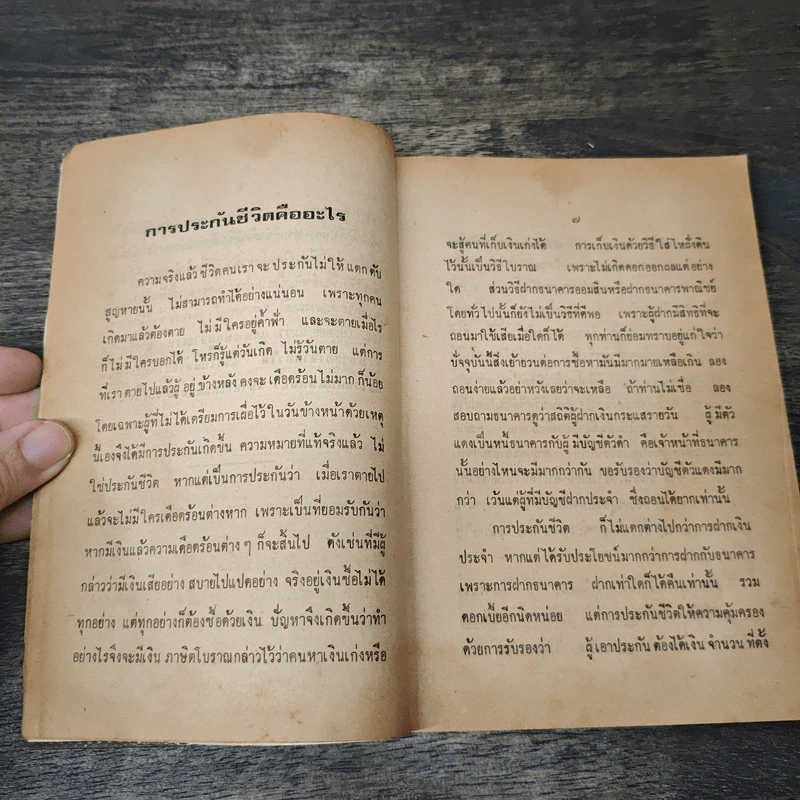 การประกันชีวิตคืออะไร
ความจริงแล้ว ชีวิตคนเรา จะ ประกันไม่ให้ แตก ดับ
สูญหายนั้น ไม่สามารถทำได้อย่างแน่นอน เพราะทุกคน
เกิดมาแล้วต้องตาย ไม่มีใครอยู่ค้ำฟ้า และจะตายเมื่อไร
ก็ไม่มีใครบอกได้ โหรก็รู้แต่วันเกิด ไม่รู้วันตาย แต่การ
ที่เราตายไปแล้วผู้อยู่ข้างหลัง คงจะเดือดร้อนไม่มากก็น้อย
โดยเฉพาะผู้ที่ไม่ได้เตรียมการเผื่อไว้ในวันข้างหน้าด้วยเหตุ
นี้เองจึงได้มีการประกันเกิดขึ้น ความหมายที่แท้จริงแล้ว ไม่
ใช่ประกันชีวิต หากแต่เป็นการประกันว่า เมื่อเราตายไป
แล้วจะไม่มีใครเดือดร้อนต่างหาก เพราะเป็นที่ยอมรับกันว่า
หากมีเงินแล้วความเดือดร้อนต่าง ๆ ก็จะสิ้นไป ดังเช่นที่มีผู้
กล่าวว่ามีเงินเสียอย่าง สบายไปแปดอย่าง จริงอยู่เงินซื้อไม่ได้
ทุกอย่าง แต่ทุกอย่างก็ต้องซื้อด้วยเงิน ปัญหาจึงเกิดขึ้นว่าทำ
อย่างไรจึงจะมีเงิน ภาษิตโบราณกล่าวไว้ว่าคนหาเงินเก่งหรือ
๗
จะสู้คนที่เก็บเงินเก่งได้ การเก็บเงินด้วยวิธีใส่ไหฝังดิน
ไว้นั้นเป็นวิธีโบราณ เพราะไม่เกิดดอกออกผลแต่อย่าง
ใด ส่วนวิธีฝากธนาคารออมสินหรือฝากธนาคารพาณิชย์
โดยทั่วไปนั้นก็ยังไม่เป็นวิธีที่ดีพอ เพราะผู้ฝากมีสิทธิที่จะ
ถอนมาใช้เสียเมื่อใดก็ได้ ทุกท่านก็ย่อมทราบอยู่แก่ใจว่า
ปัจจุบันนี้สิ่งเย้ายวนต่อการซื้อหามันมีมากมายเหลือเกิน ลอง
ถอนง่ายแล้วอย่าหวังเลยว่าจะเหลือ ถ้าท่านไม่เชื่อ ลอง
สอบถามธนาคารดูว่าสถิติผู้ฝากเงินกระแสรายวัน ผู้มีตัว
แดงเป็นหนี้ธนาคารกับผู้มีบัญชีตัวดำ คือเจ้าหน้าที่ธนาคาร
นั้นอย่างไหนจะมีมากกว่ากัน ขอรับรองว่าบัญชีตัวแดงมีมาก
กว่า เว้นแต่ผู้ที่มีบัญชีฝากประจำ ซึ่งถอนได้ยากเท่านั้น
การประกันชีวิต ก็ไม่แตกต่างไปกว่าการฝากเงิน
ประจำ หากแต่ได้รับประโยชน์มากกว่าการฝากกับธนาคาร
เพราะการฝากธนาคาร ฝากเท่าใดก็ได้คืนเท่านั้น รวม
ดอกเบี้ยอีกนิดหน่อย แต่การประกันชีวิตให้ความคุ้มครอง
ด้วยการรับรองว่า ผู้เอาประกัน ต้องได้เงิน จำนวน ที่ตั้ง